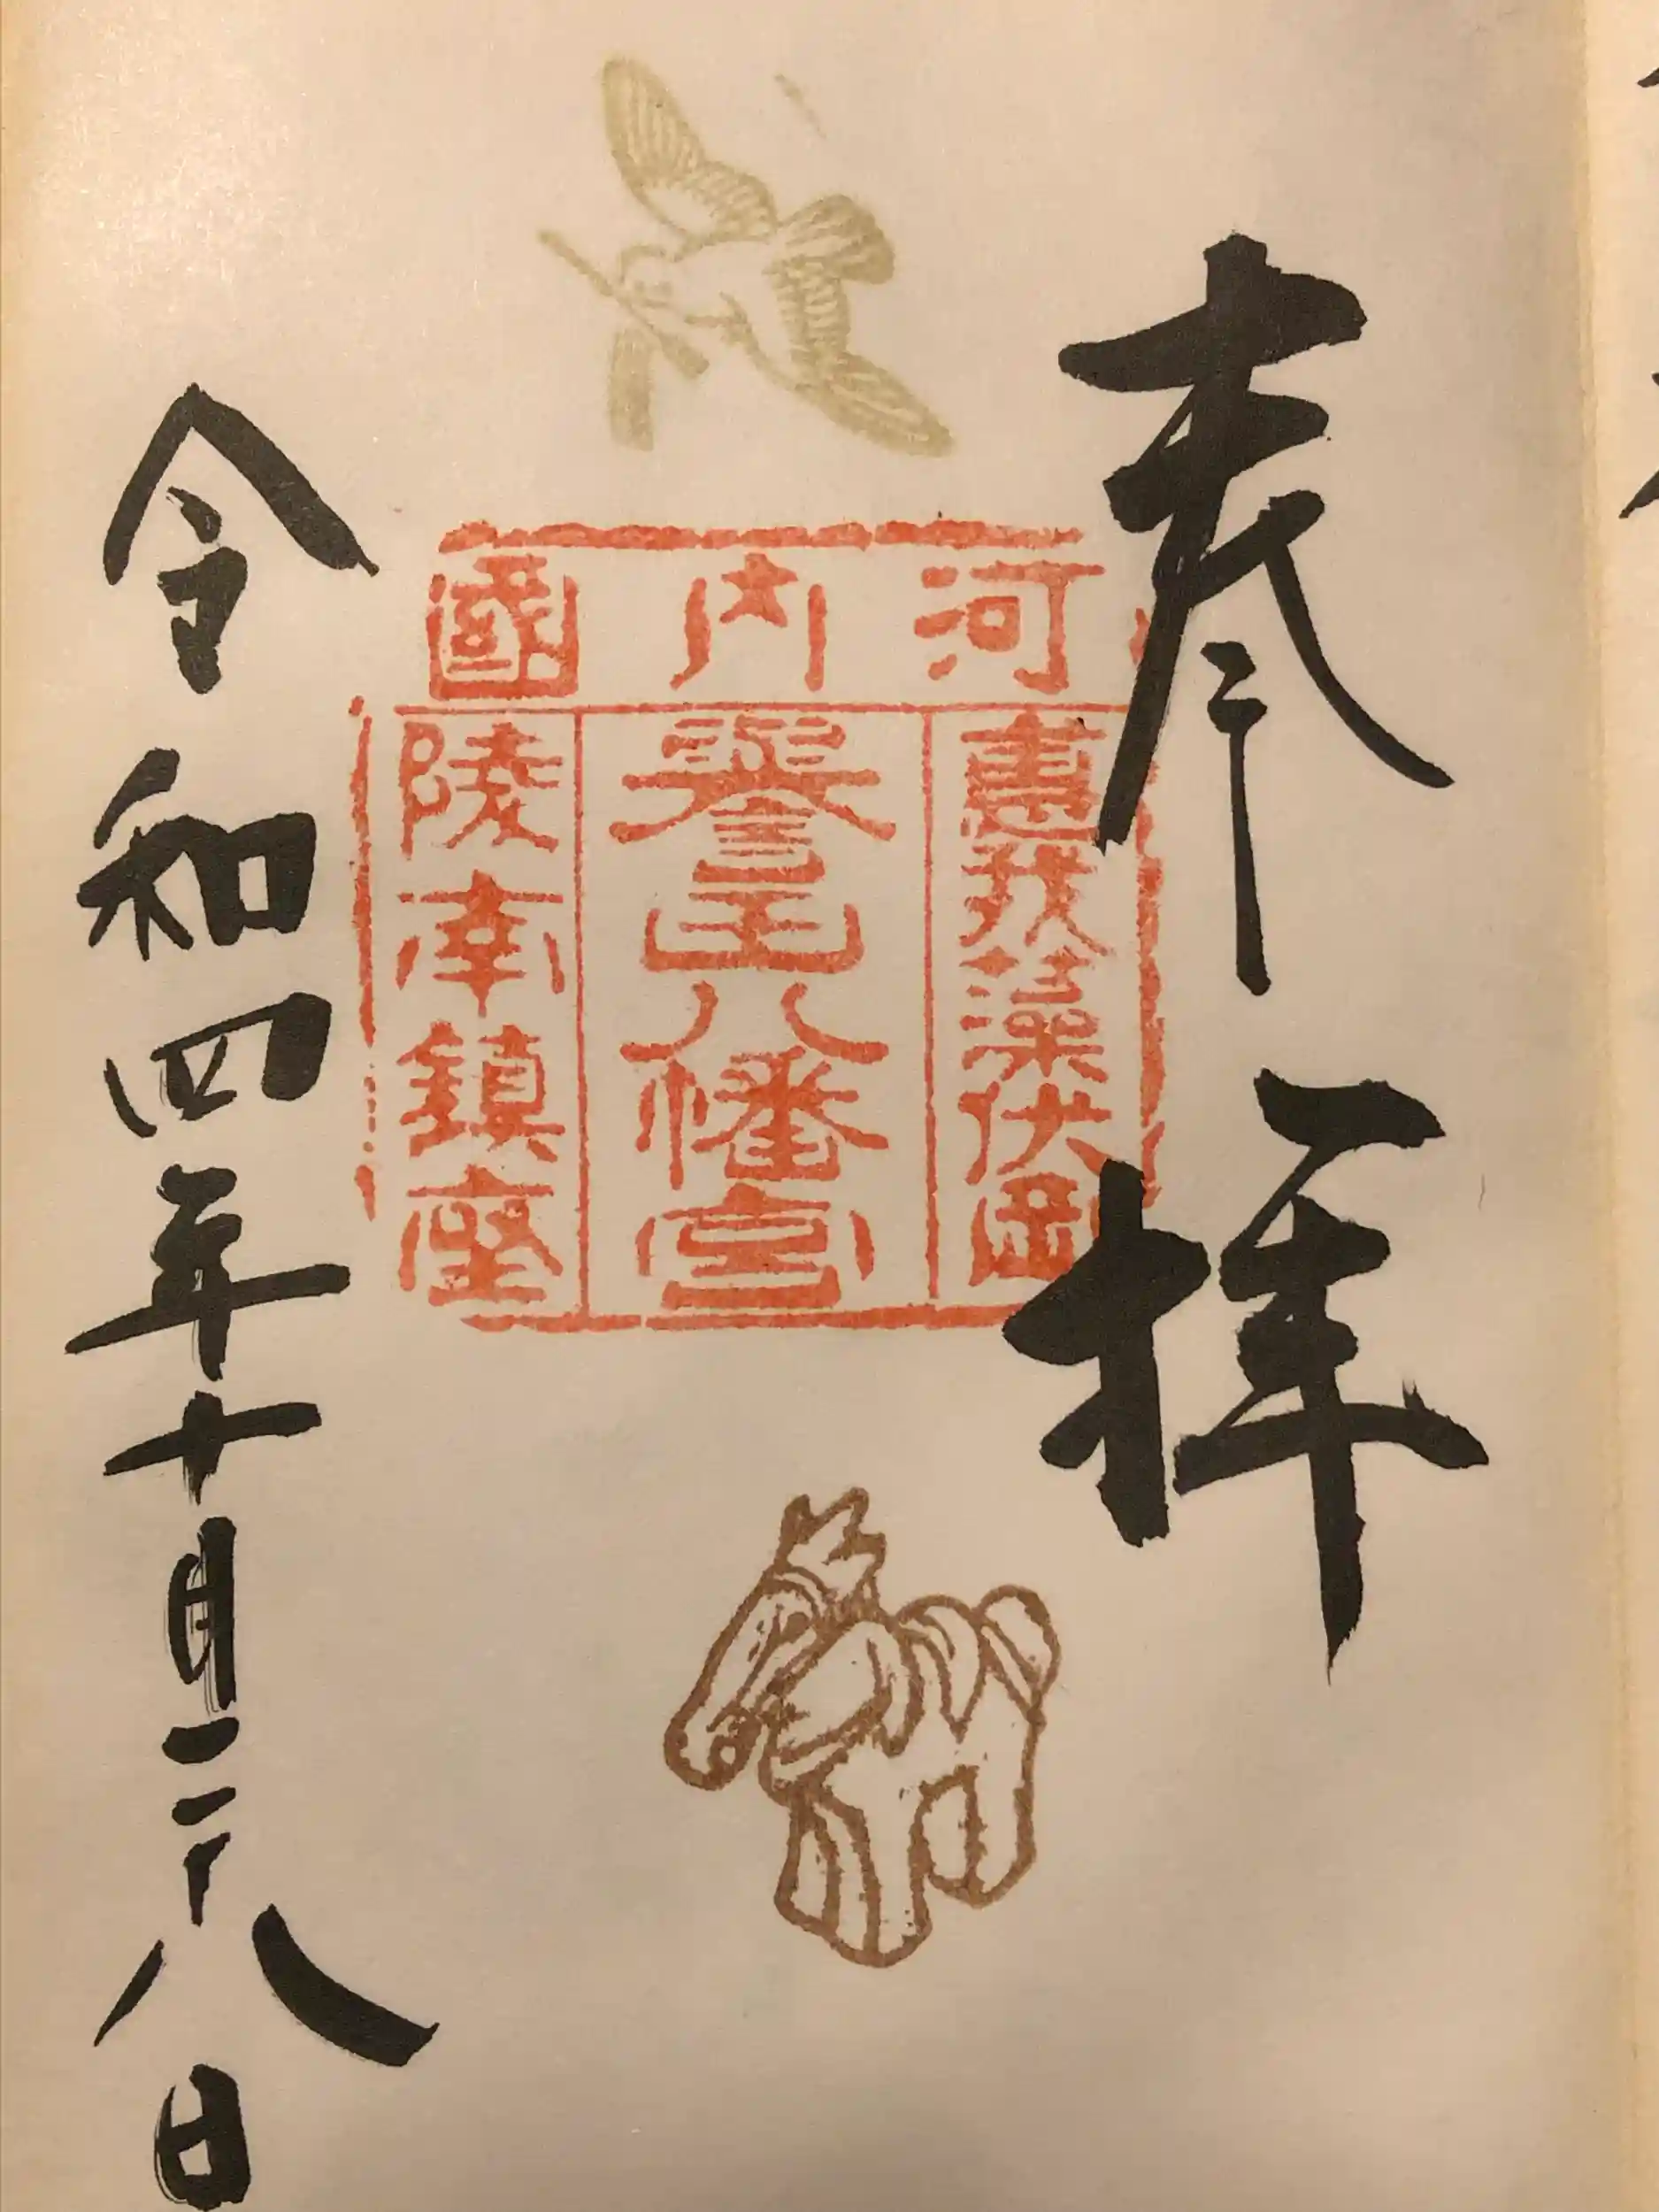 奉拝
河内國
惠我藻伏岡
譽田八幡宮
陵南鎮座
令和四年十月二十八日